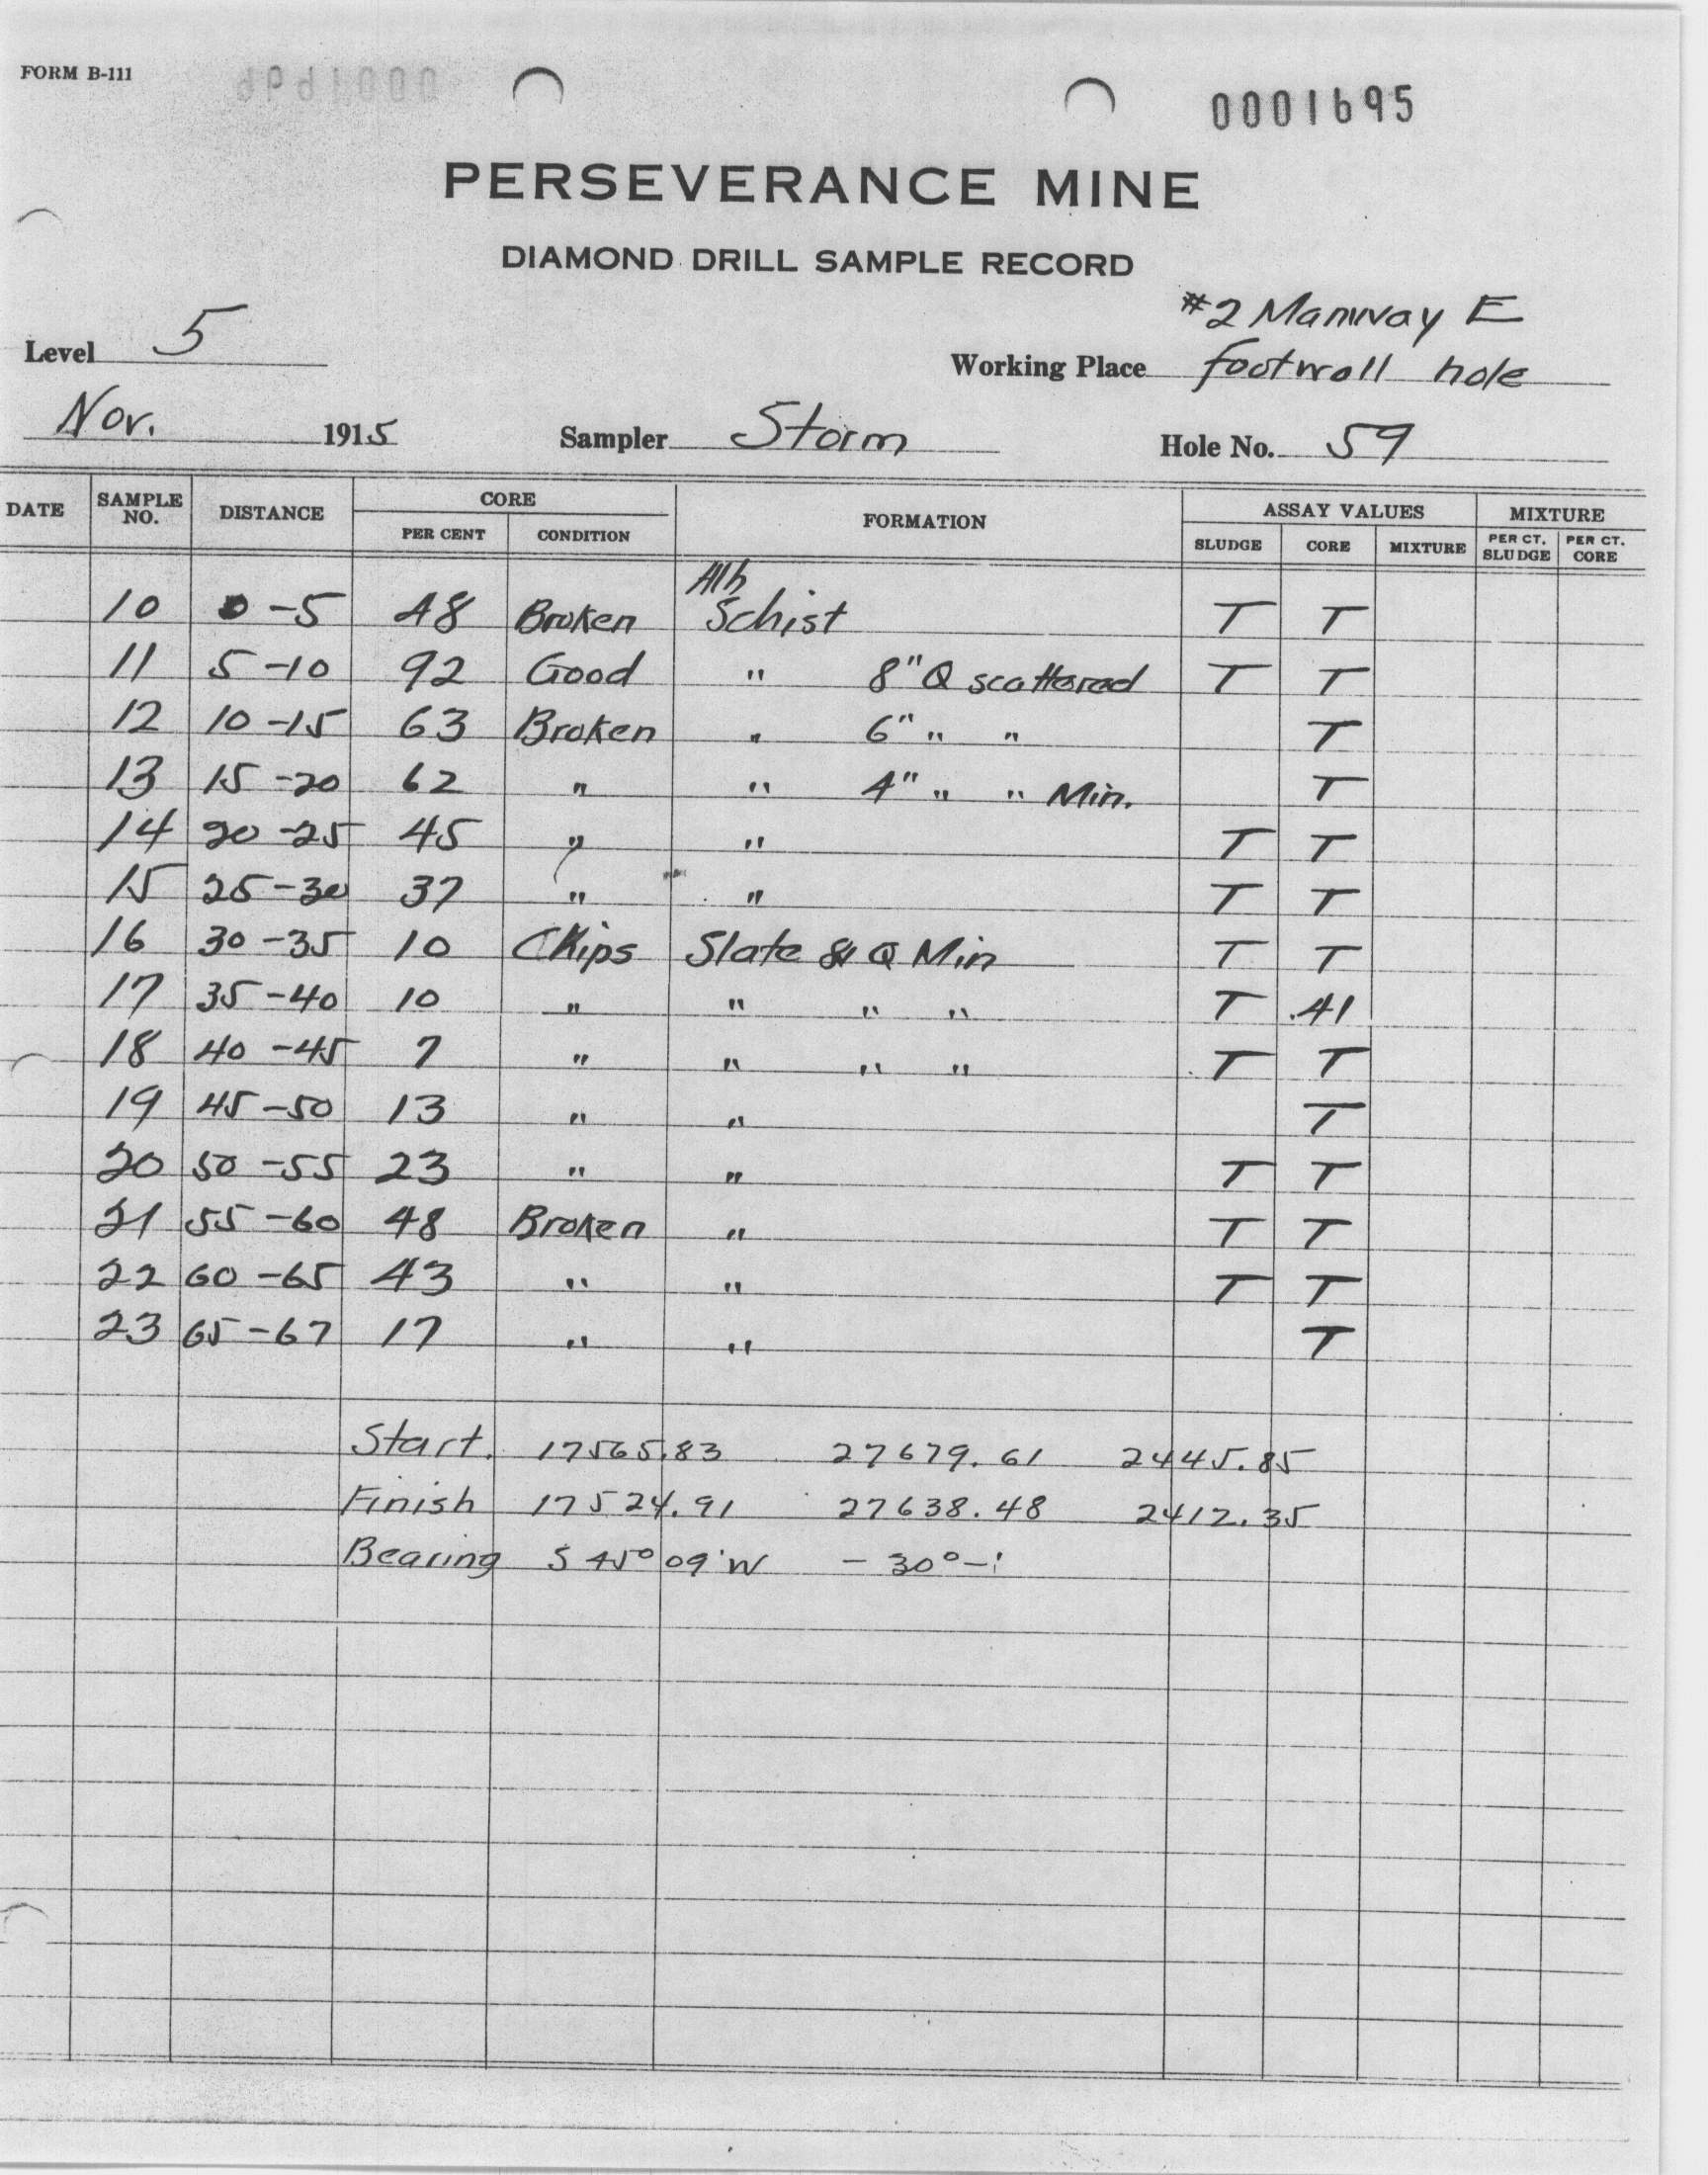 FORM B-111
0001695
PERSEVERANCE MINE
DIAMOND DRILL SAMPLE RECORD
#2 Manway E
Level 5 Working Place footwall hole
Nov. 1915 Sampler Storm Hole No. 59
DATE SAMPLE NO. DISTANCE CORE FORMATION ASSAY VALUES MIXTURE
PER CENT CONDITION SLUDGE CORE MIXTURE PER CT. SLUDGE PER CT. CORE
10 0-5 48 Broken Schist T T
11 5-10 92 Good " 8" Q scattered T T
12 10-15 63 Broken " 6" " " T
13 15-20 62 " " 4" " " Min. T
14 20-25 45 " " T T
15 25-30 37 " " T T
16 30-35 10 Chips Slate & Q Min T T
17 35-40 10 " " " " T .41
18 40-45 7 " " " " T T
19 45-50 13 " " T
20 50-55 23 " " T T
21 55-60 48 Broken " T T
22 60-65 43 " " T T
23 65-67 17 " " T
Start. 17565.83 27679.61 2445.85
Finish 17524.91 27638.48 2412.35
Bearing S 45° 09' W - 30° -'